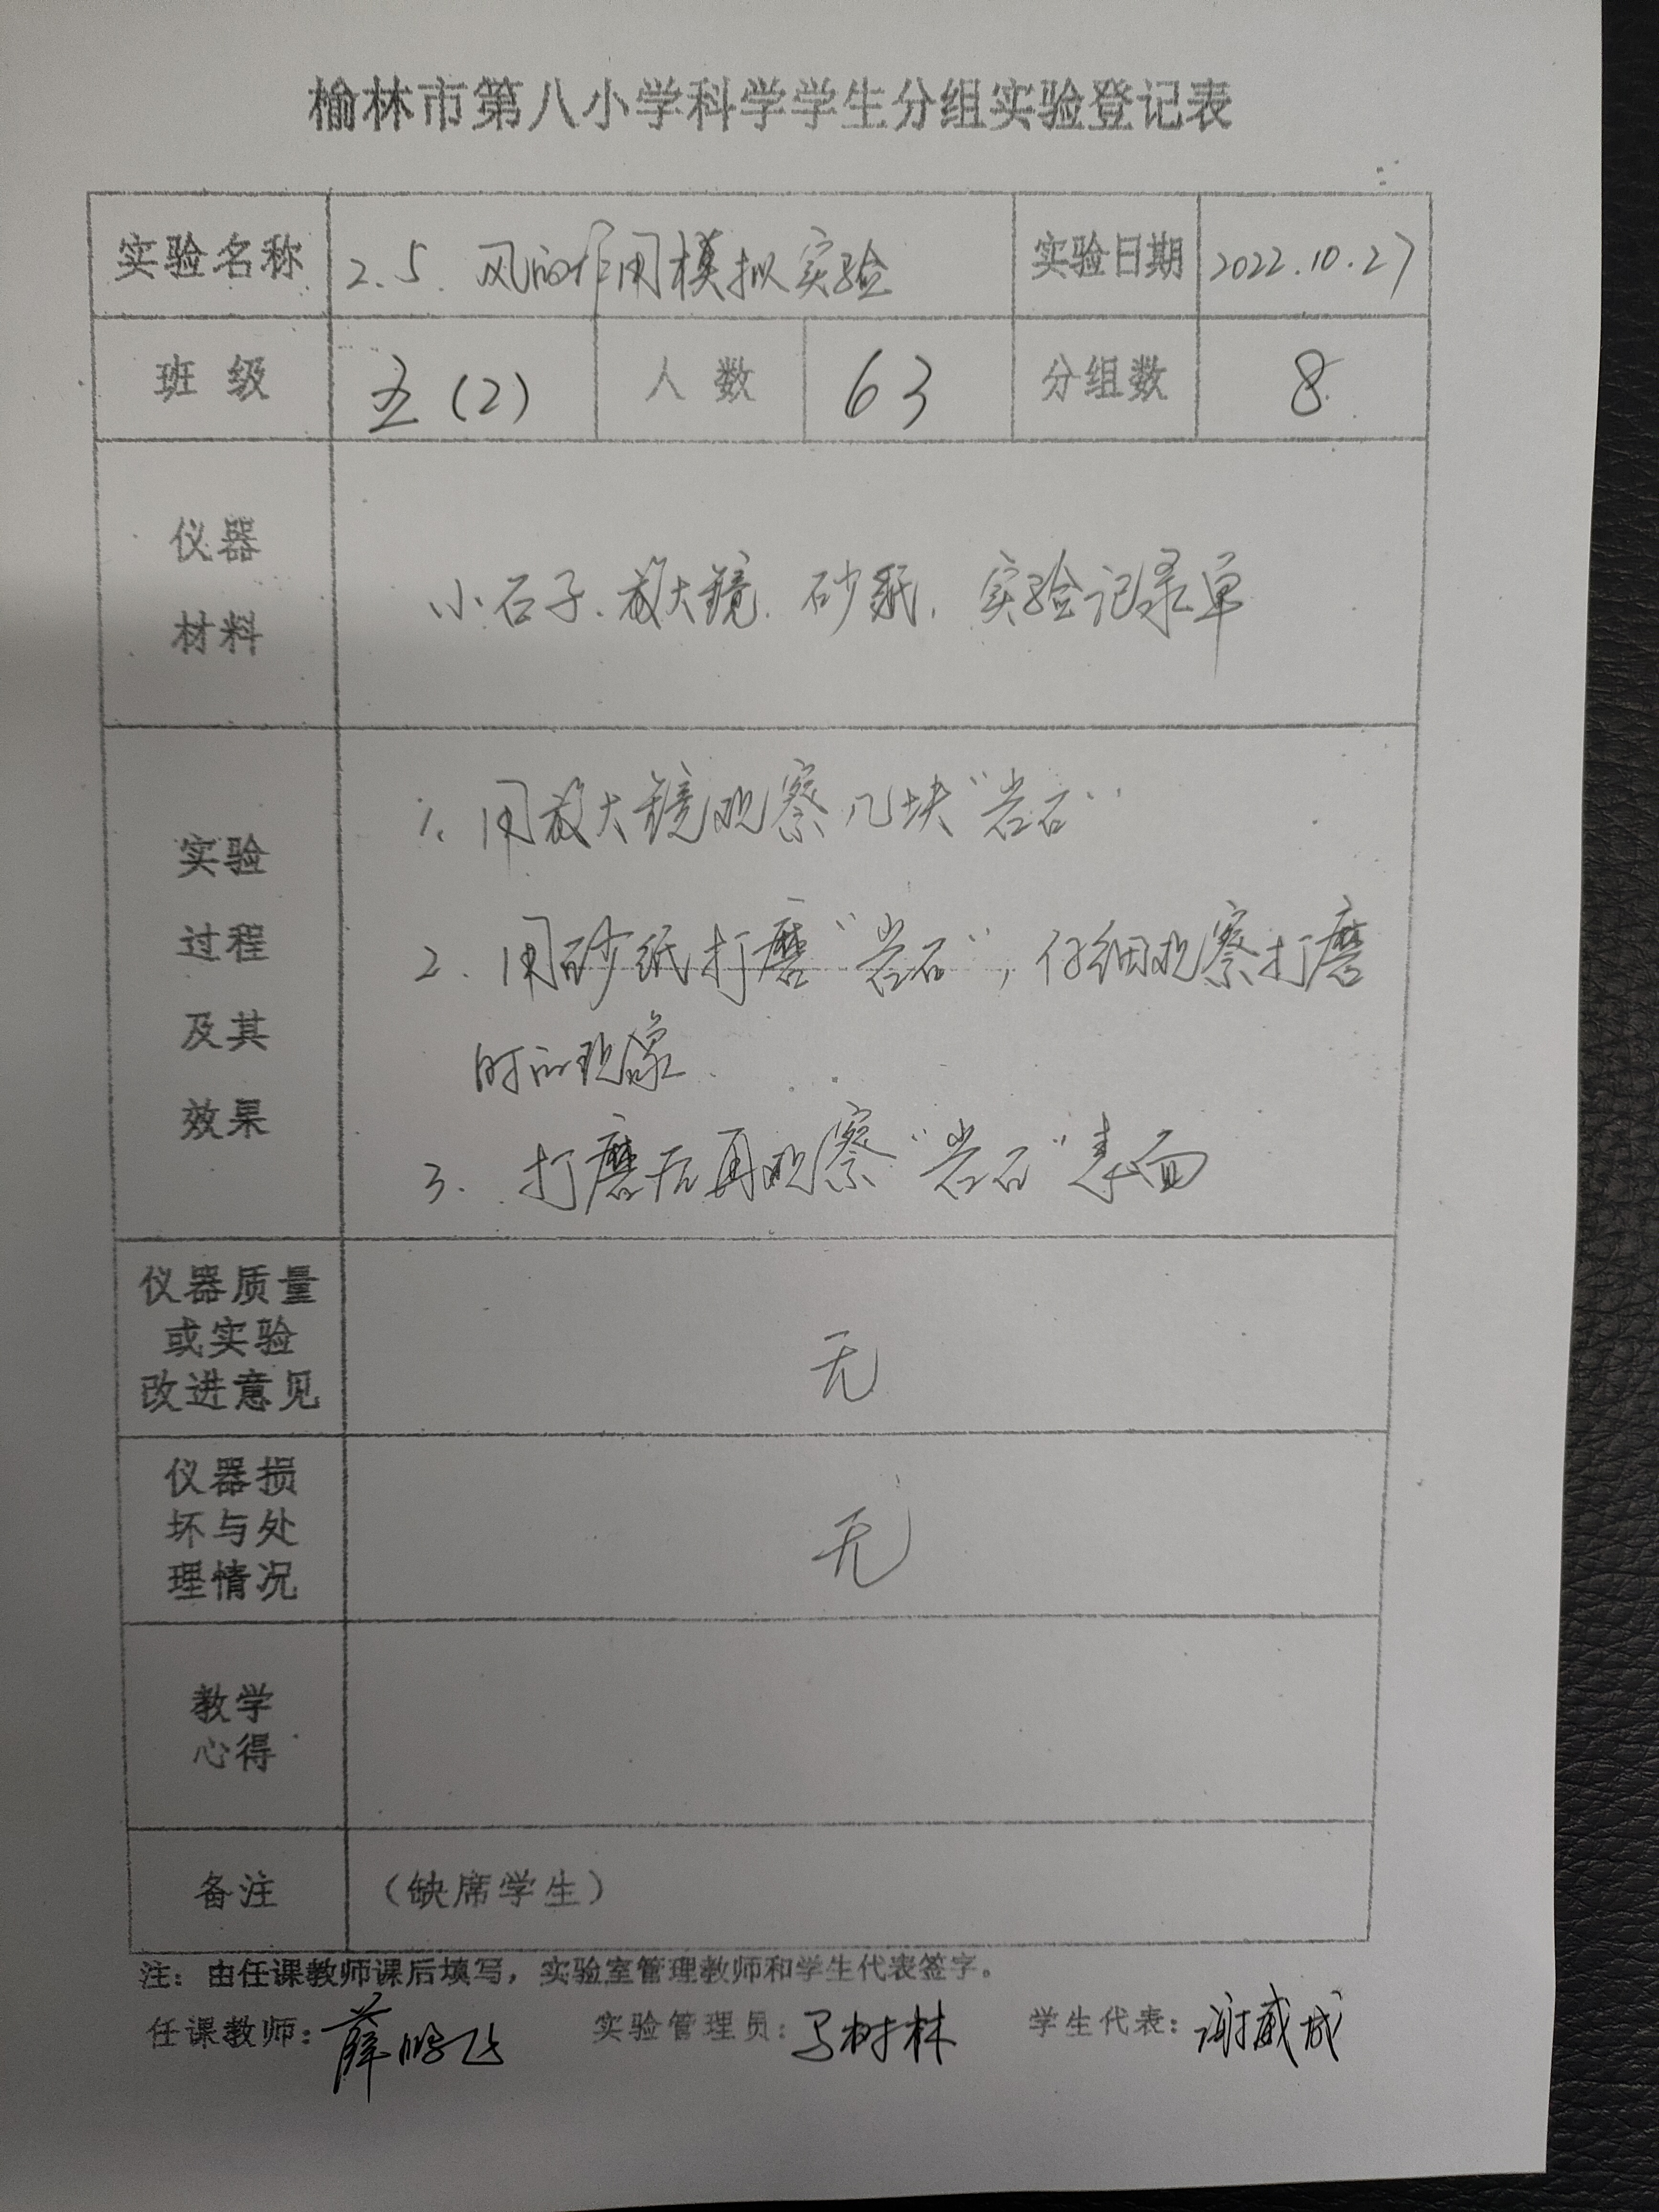 榆林市第八小学科学学生分组实验登记表
实验名称 2.5. 风的作用模拟实验 实验日期 2022.10.27
班 级 五(2) 人 数 63 分组数 8
仪器
材料
小石子、放大镜. 砂纸. 实验记录单
实验
过程
及其
效果
1. 用放大镜观察几块“岩石”
2. 用砂纸打磨“岩石”, 仔细观察打磨
时的现象.
3. 打磨后再观察“岩石”表面
仪器质量
或实验
改进意见
无
仪器损
坏与处
理情况
无
教学
心得
备注 (缺席学生)
注：由任课教师课后填写，实验室管理教师和学生代表签字。
任课教师：薛鹏飞 实验管理员：马树林 学生代表：谢威成